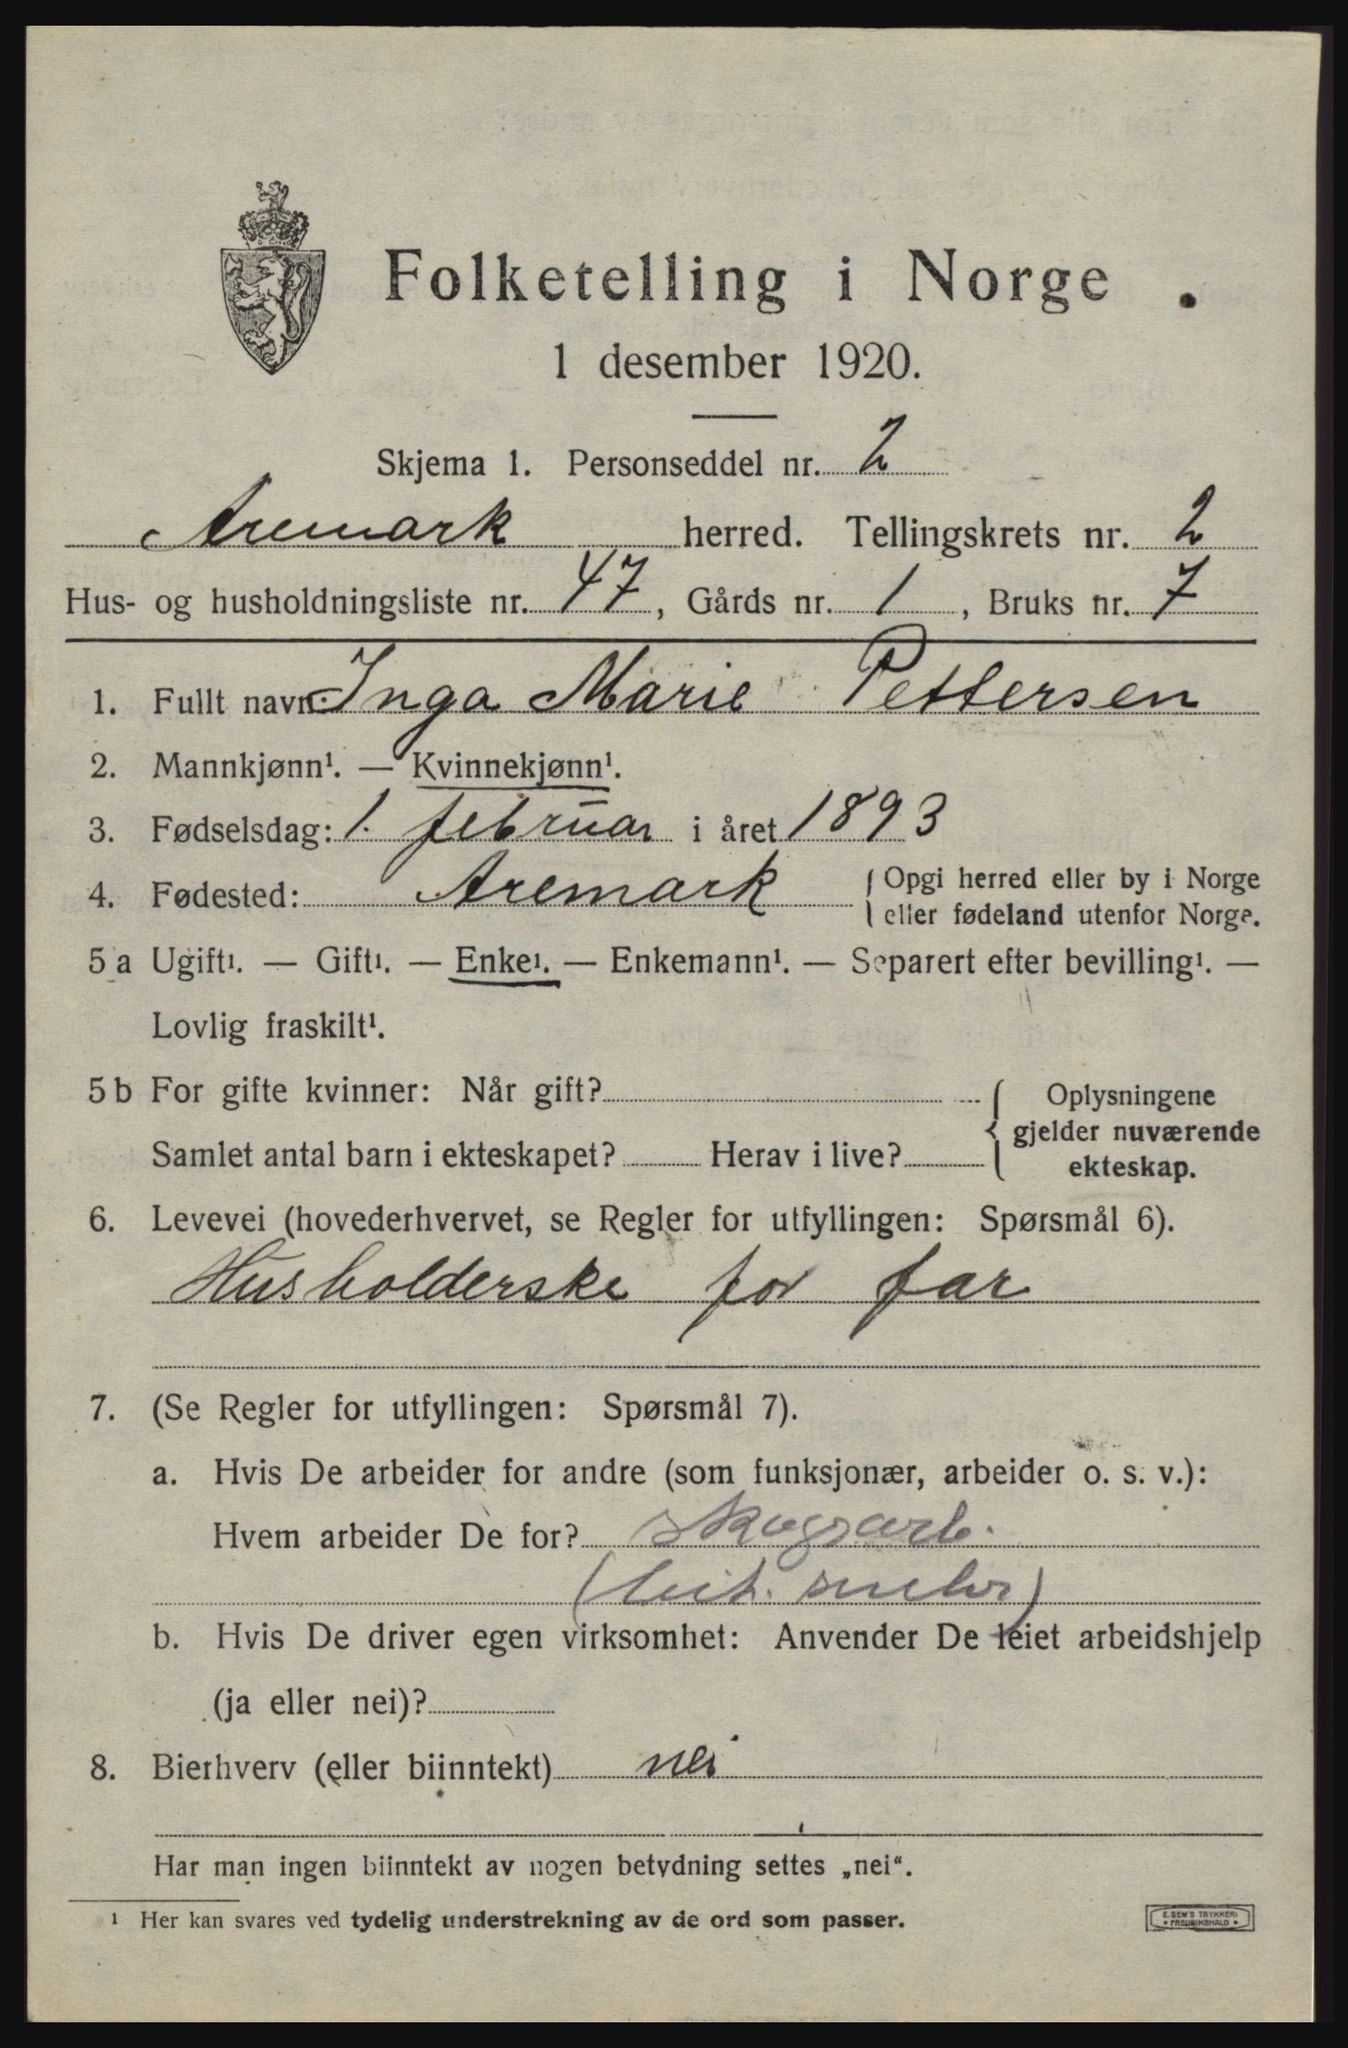 Folketelling i Norge
1 desember 1920.
Skjema 1. Personseddel nr. 2
Aremark herred. Tellingskrets nr. 2
Hus- og husholdningsliste nr. 47, Gårds nr. 1, Bruks nr. 7
1. Fullt navn: Inga Marie Pettersen
2. Mannkjønn¹. — Kvinnekjønn¹.
3. Fødselsdag: 1. februar i året 1893
4. Fødested: Aremark { Opgi herred eller by i Norge
eller fødeland utenfor Norge.
5 a Ugift¹. — Gift¹. — Enke¹. — Enkemann¹. — Separert efter bevilling¹. —
Lovlig fraskilt¹.
5 b For gifte kvinner: Når gift? { Oplysningene
gjelder nuværende
Samlet antal barn i ekteskapet? Herav i live?
ekteskap.
6. Levevei (hovederhvervet, se Regler for utfyllingen: Spørsmål 6).
Husholderske for far
7. (Se Regler for utfyllingen: Spørsmål 7).
a. Hvis De arbeider for andre (som funksjonær, arbeider o. s. v.):
Hvem arbeider De for? skogsarb.
b. Hvis De driver egen virksomhet: Anvender De leiet arbeidshjelp
(ja eller nei)?
8. Bierhverv (eller biinntekt) nei
Har man ingen biinntekt av nogen betydning settes „nei“.
¹ Her kan svares ved tydelig understrekning av de ord som passer.
E. SEM'S TRYKKERI
• FREDRIKSHALD •